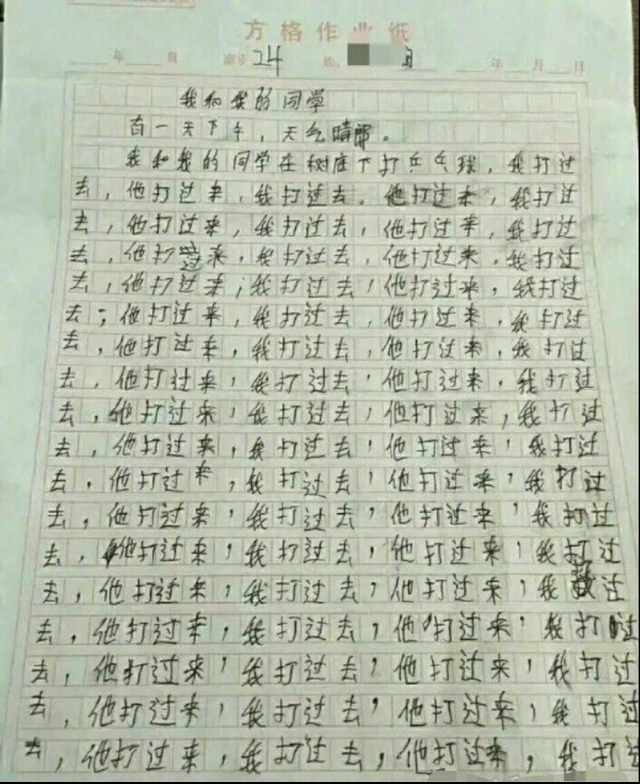 方格作业纸
年 月 座号 24 年 月 日
我和我的同学
有一天下午，天气晴朗。
我和我的同学在树底下打乒乓球，我打过
去，他打过来，我打过去，他打过来，我打过
去，他打过来，我打过去，他打过来，我打过
去，他打过来，我打过去，他打过来，我打过
去，他打过来，我打过去，他打过来，我打过
去，他打过来，我打过去，他打过来，我打过
去，他打过来，我打过去，他打过来，我打过
去，他打过来，我打过去，他打过来，我打过
去，他打过来，我打过去，他打过来，我打过
去，他打过来，我打过去，他打过来，我打过
去，他打过来，我打过去，他打过来，我打过
去，他打过来，我打过去，他打过来，我打过
去，他打过来，我打过去，他打过来，我打过
去，他打过来，我打过去，他打过来，我过
去，他打过来，我打过去，他打过来，我打过
去，他打过来，我打过去，他打过来，我打过
去，他打过来，我打过去，他打过来，我打过
去，他打过来，我打过去，他打过来，我打过